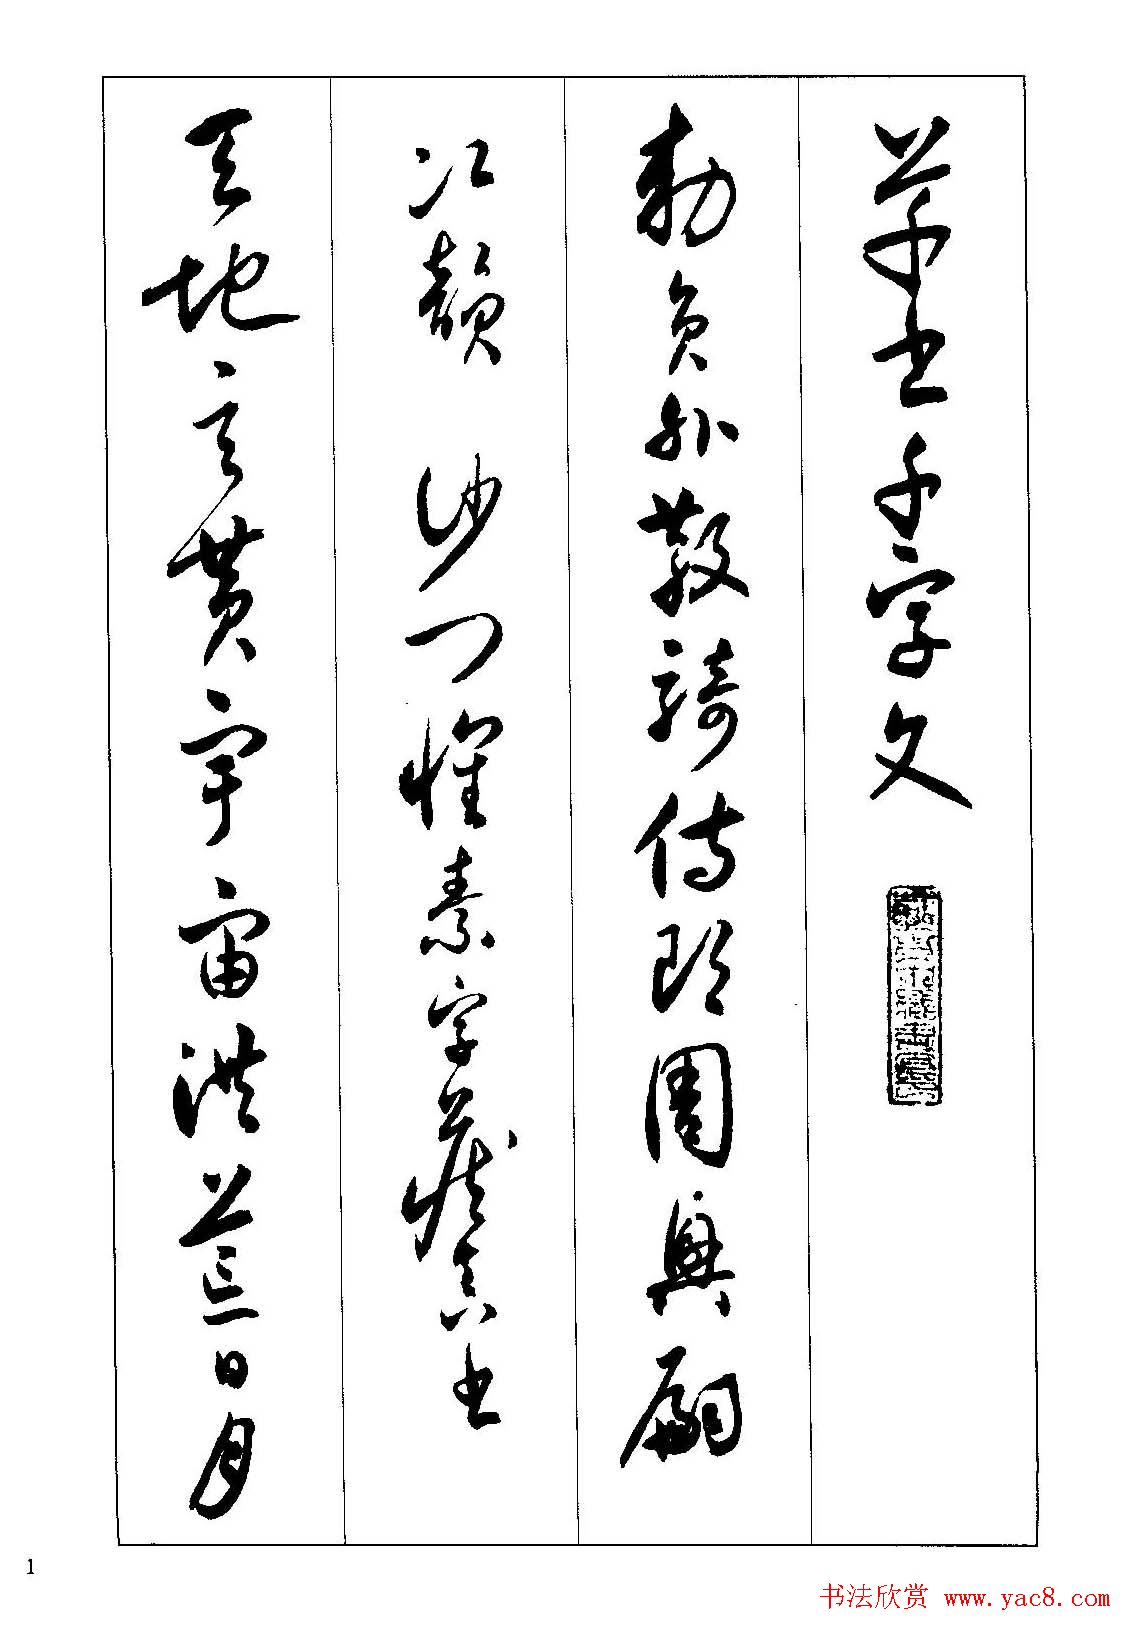 草書千字文
勅員外散騎侍郎周興嗣
次韻 沙門懷素字藏真書
天地玄黄宇宙洪荒日月
1
书法欣赏 www.yac8.com